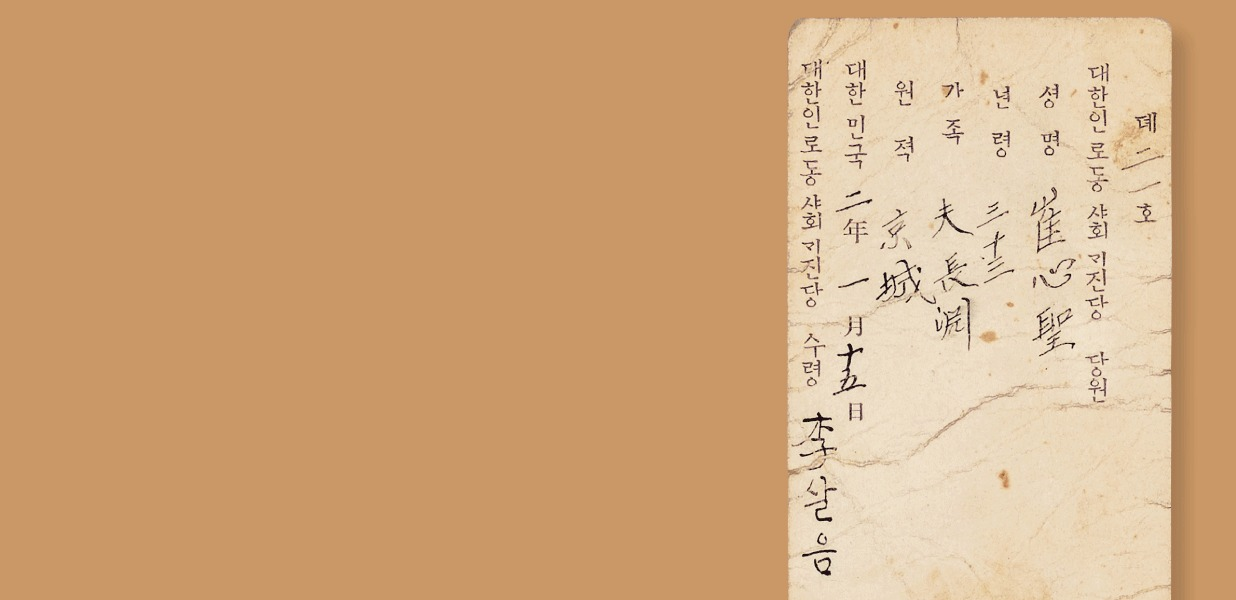 뎨二一호
대한인로동샤회기진당 당원
셩명 崔心聖
년령 三十三
가죡 夫長淵
원젹 京城
대한민국二年一月十五日
대한인로동샤회기진당 수령 李살음